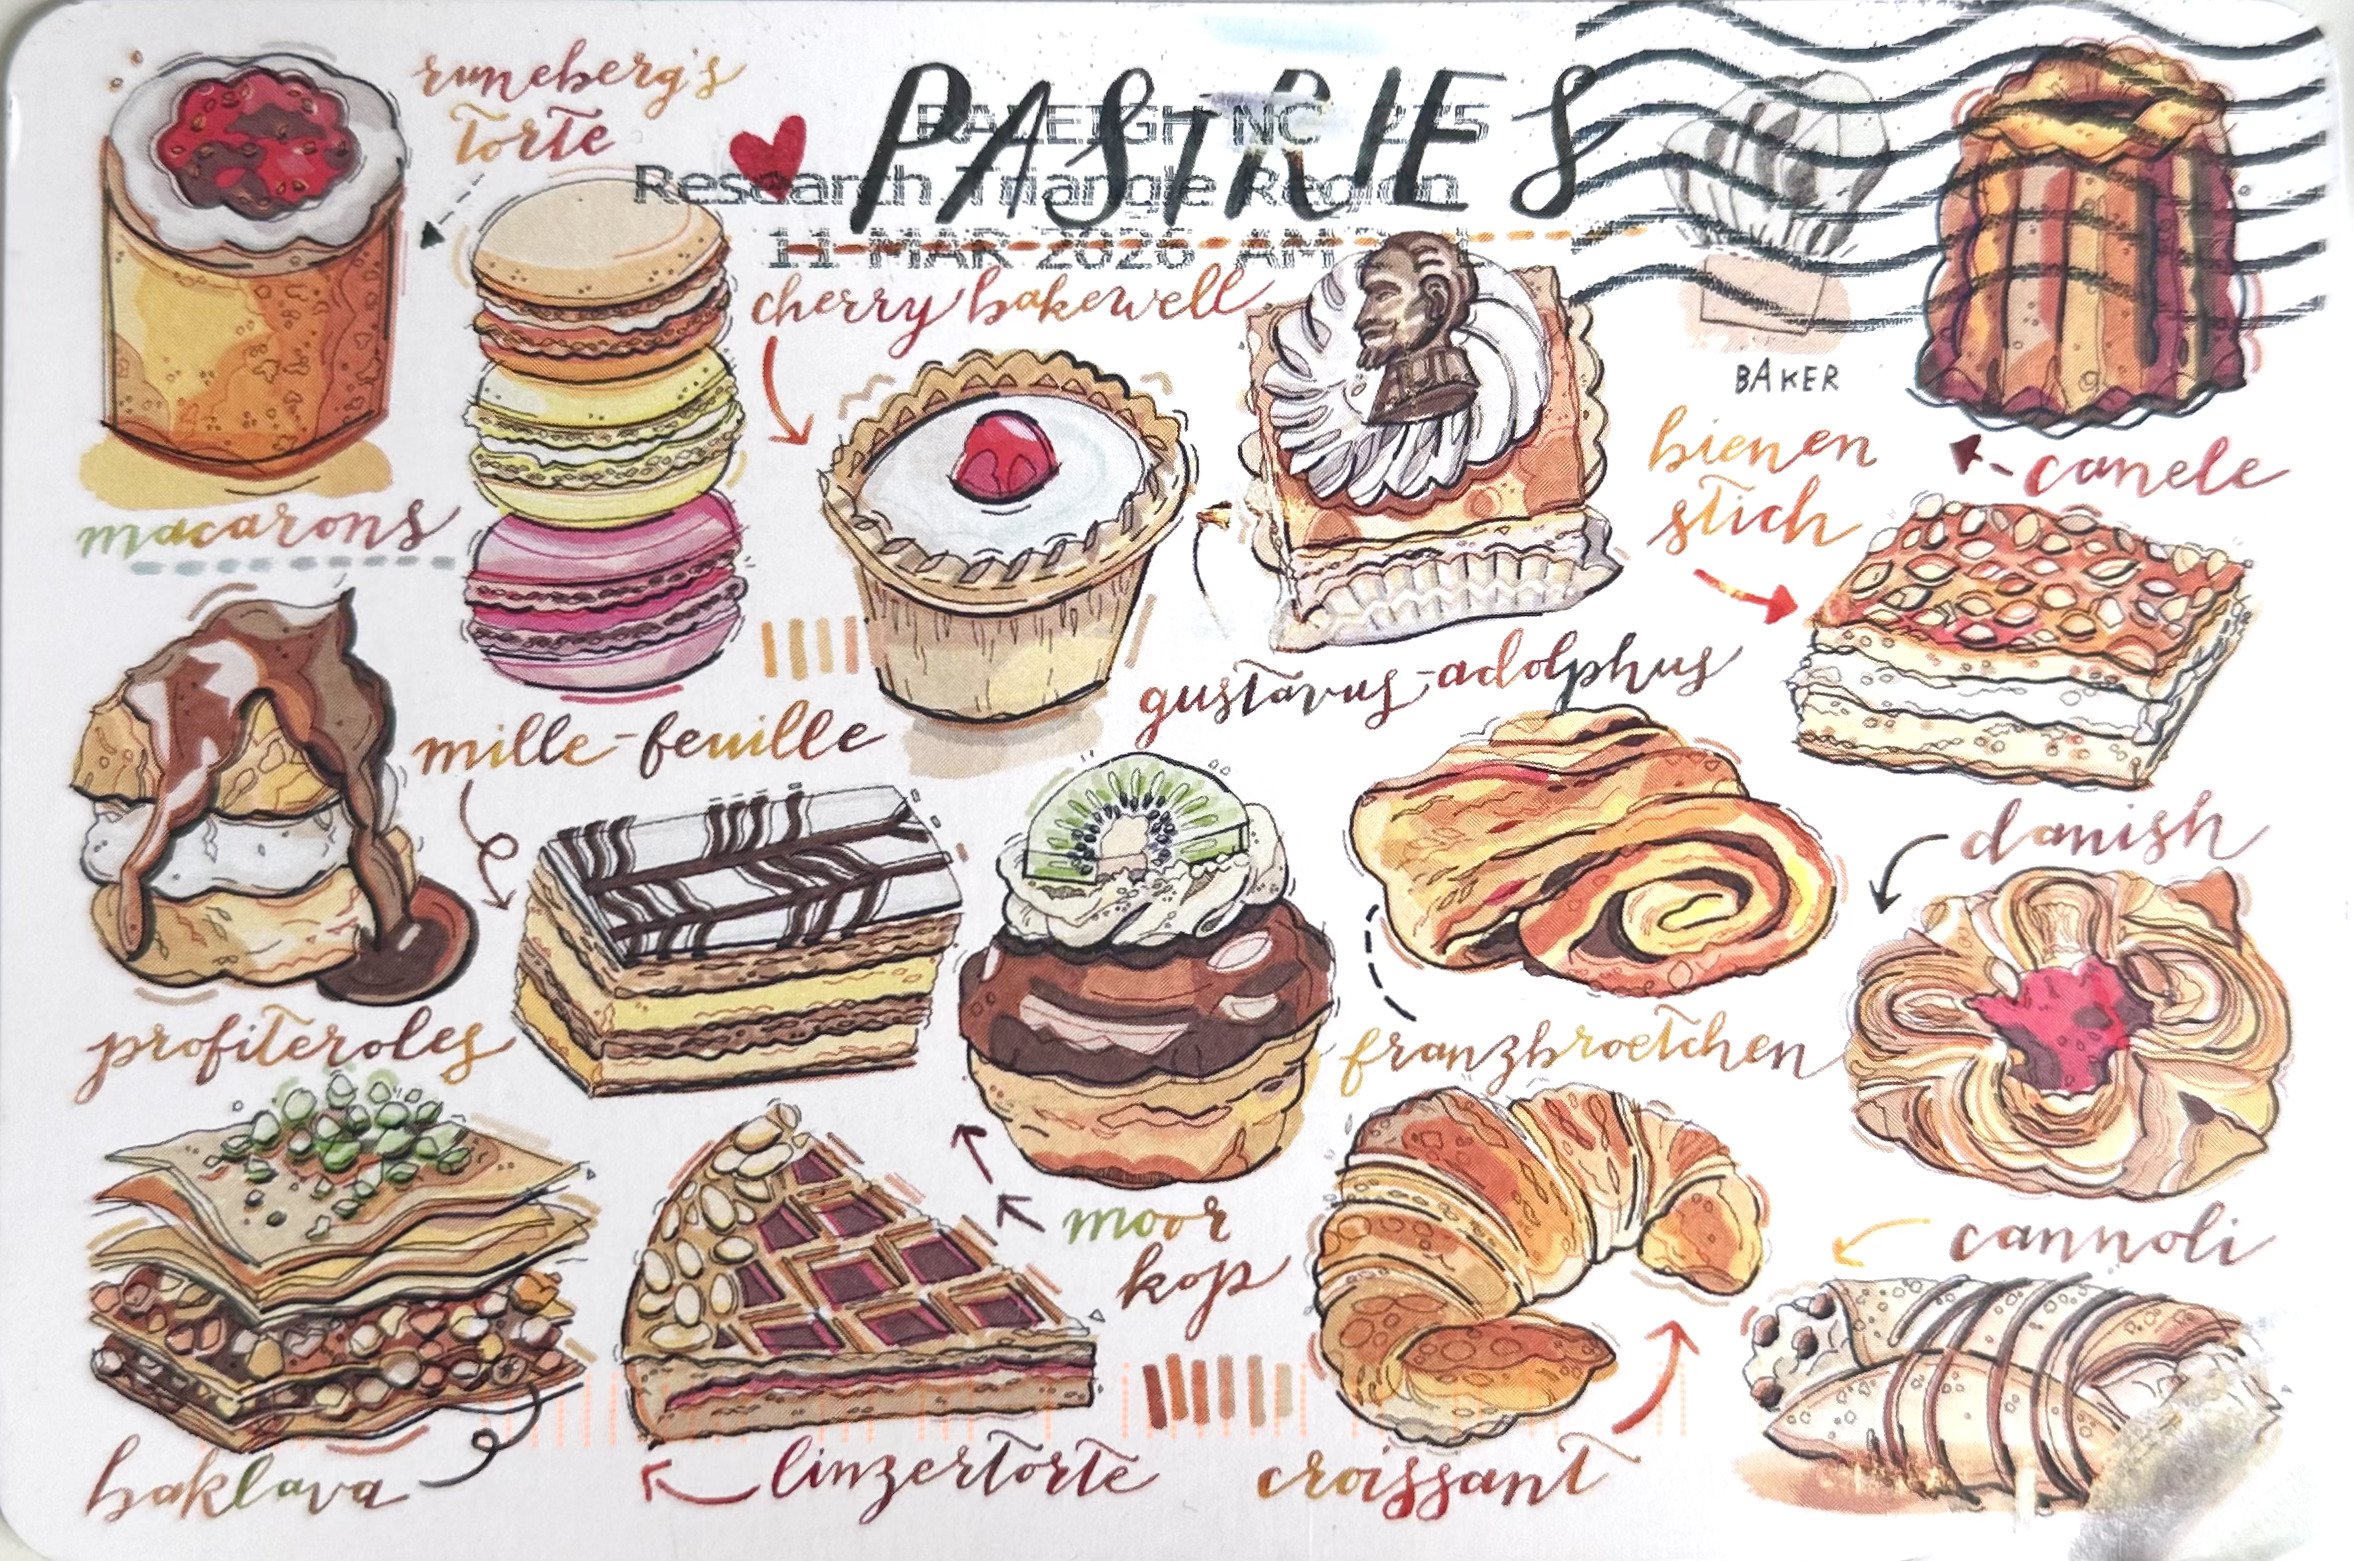 runeberg's
torte
PASTRIES
RALEIGH NC 275
Research Triangle Region
11 MAR 2026 AM
cherry bakewell
BAKER
bienen
stich
canele
macarons
gustavus-adolphus
mille-feuille
danish
profiteroles
franzbroetchen
moor
kop
cannoli
baklava
linzertorte
croissant